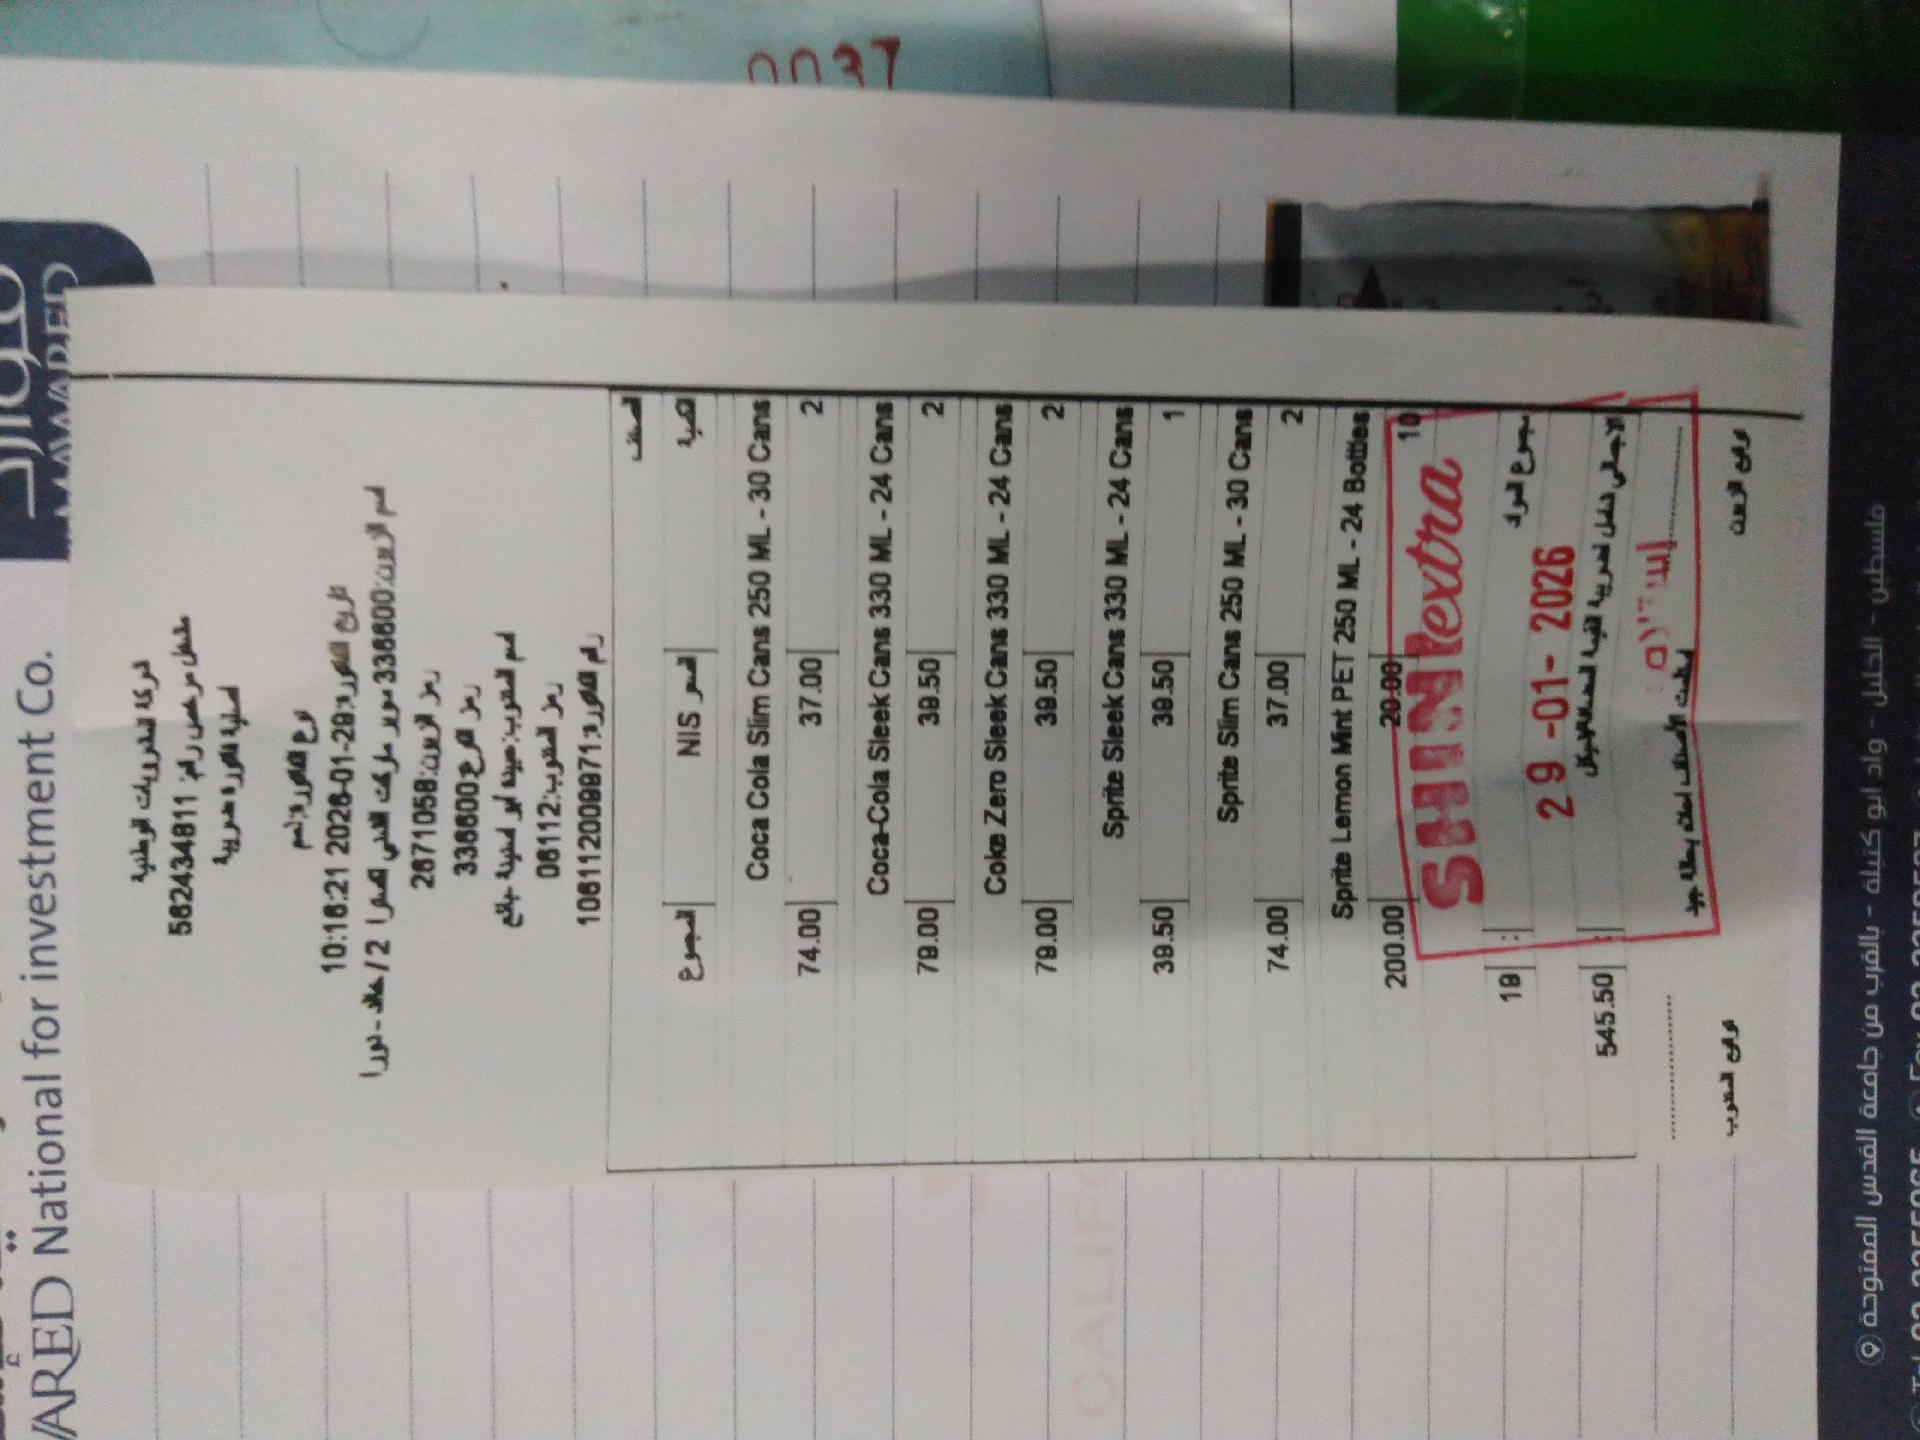 0037
موارد
MAWARED
WARED National for investment Co.
شركة المشروبات الوطنية
مشغل مرخص رقم: 562434811
اصلية الفاتورة ضريبية
نوع الفاتورة: ذمم
تاريخ الفاتورة: 2026-01-29 10:16:21
اسم الزبون: 3366600 سوبر ماركت
رمز الزبون: 26710568
رمز الفرع: 3366600
رمز المندوب: 06112
الصنف
الكمية السعر NIS المجموع
Coca Cola Slim Cans 250 ML - 30 Cans
2 37.00 74.00
Coca-Cola Sleek Cans 330 ML - 24 Cans
2 39.50 79.00
Coke Zero Sleek Cans 330 ML - 24 Cans
2 39.50 79.00
Sprite Sleek Cans 330 ML - 24 Cans
1 39.50 39.50
Sprite Slim Cans 250 ML - 30 Cans
2 37.00 74.00
Sprite Lemon Mint PET 250 ML - 24 Bottles
10 20.00 200.00
SHINI extra
مجموع المواد : 19
29 -01- 2026
الاجمالي شامل لضريبة القيمة المضافة بالشيكل : 545.50
الإستلام
توقيع الزبون توقيع المندوب
CALIFO
فلسطين - الخليل - واد ابو كتيلة - بالقرب من جامعة القدس المفتوحة